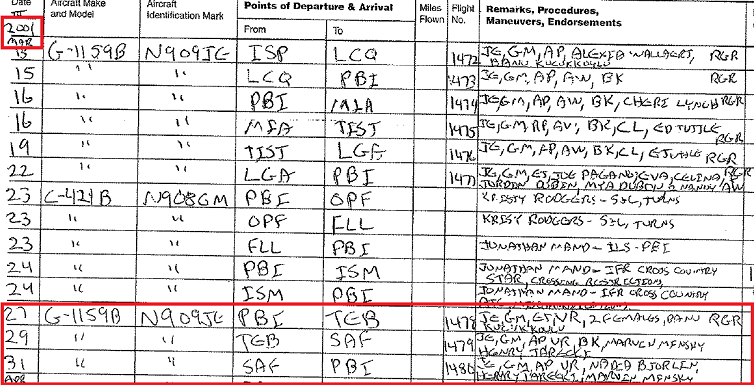 Date Aircraft Make and Model Aircraft Identification Mark Points of Departure & Arrival Miles Flown Flight No. Remarks, Procedures, Maneuvers, Endorsements
From To
2001
MAR
13 G-1159B N909JE ISP LCQ 1472 JE, GM, AP, ALEXIA WALLAERT, RGR
BANU KUCUKKOYLU
15 " " LCQ PBI 1473 JE, GM, AP, AW, BK RGR
16 " " PBI MIA 1474 JE, GM, AP, AW, BK, CHERI LYNCH RGR
16 " " MIA TIST 1475 JE, GM, AP, AV, BK, CL, ED TUTTLE RGR
19 " " TIST LGA 1476 JE, GM, AP, AW, BK, CL, E TUTTLE RGR
22 " " LGA PBI 1477 JE, GM, ET, JOE PAGANO, EVA, CELINA, RGR
JORDAN DUBIN, MYA DUBIN, 2 NANNY AW
23 C-421B N908GM PBI OPF KRISTY RODGERS - S&L, TURNS
23 " " OPF FLL KRISTY RODGERS - S&L, TURNS
23 " " FLL PBI JONATHAN MANO - ILS - PBI
24 " " PBI ISM JONATHAN MANO - IFR CROSS COUNTRY
STAR, CROSSING RESTRICTION,
24 " " ISM PBI JONATHAN MANO - IFR CROSS COUNTRY
27 G-1159B N909JE PBI TEB 1478 JE, GM, ET, VR, 2 FEMALES, BANU RGR
KUCUKKOYLU
29 " " TEB SAF 1479 JE, GM, AP, VR, BK, MARVIN MINSKY
HENRY JARECKI
31 " " SAF PBI 1480 JE, GM, AP, VR, NADIA BJORLIN,
HENRY JARECKI, MARVIN MINSKY
APR